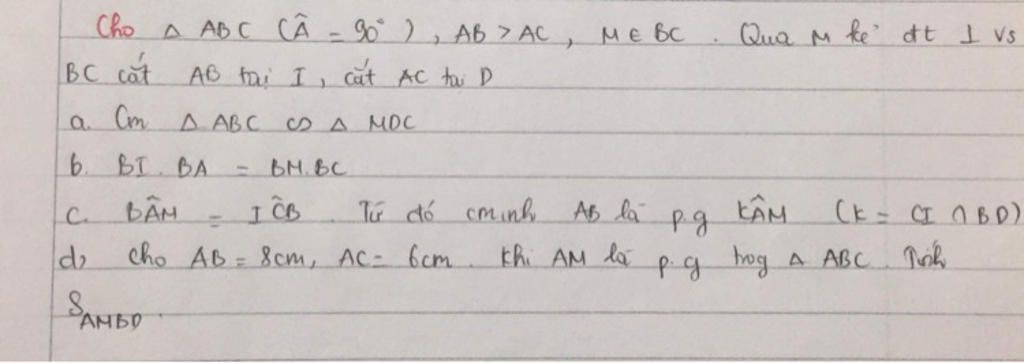 Cho △ ABC (Â = 90°), AB > AC, M ∈ BC. Qua M kẻ đt ⊥ vs
BC cắt AB tại I, cắt AC tại D
a. Cm △ ABC ∽ △ MDC
b. BI. BA = BM.BC
c. BÂM = IĈB. Từ đó cminh AB là p.g KÂM (K = CI ∩ BD)
d, Cho AB = 8cm, AC = 6cm. Khi AM là p.g trog △ ABC. Tính
S_AMBD.